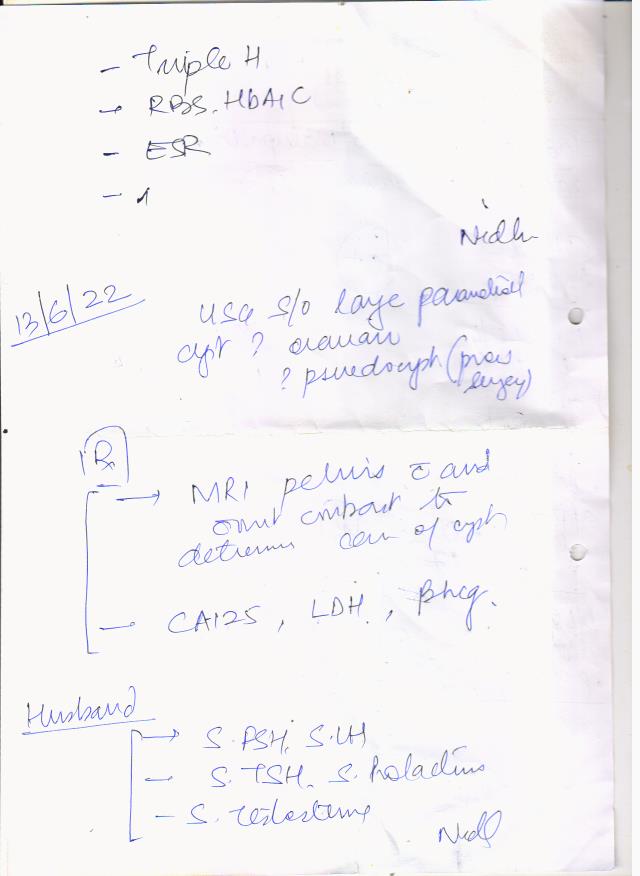 - Triple H
- RBS. HbA1C
- ESR
- 1
Nidhi
13/6/22
USG S/O large
cyst ? ovarian
? psuedocyst (prev
surgery)
Rx
→ MRI pelvis c̄ and
omit contrast to
determine of cyst
- CA125, LDH, βhcg.
Husband
→ S. FSH, S. LH
- S. TSH, S. Prolactin
- S. Testosterone
Nidhi